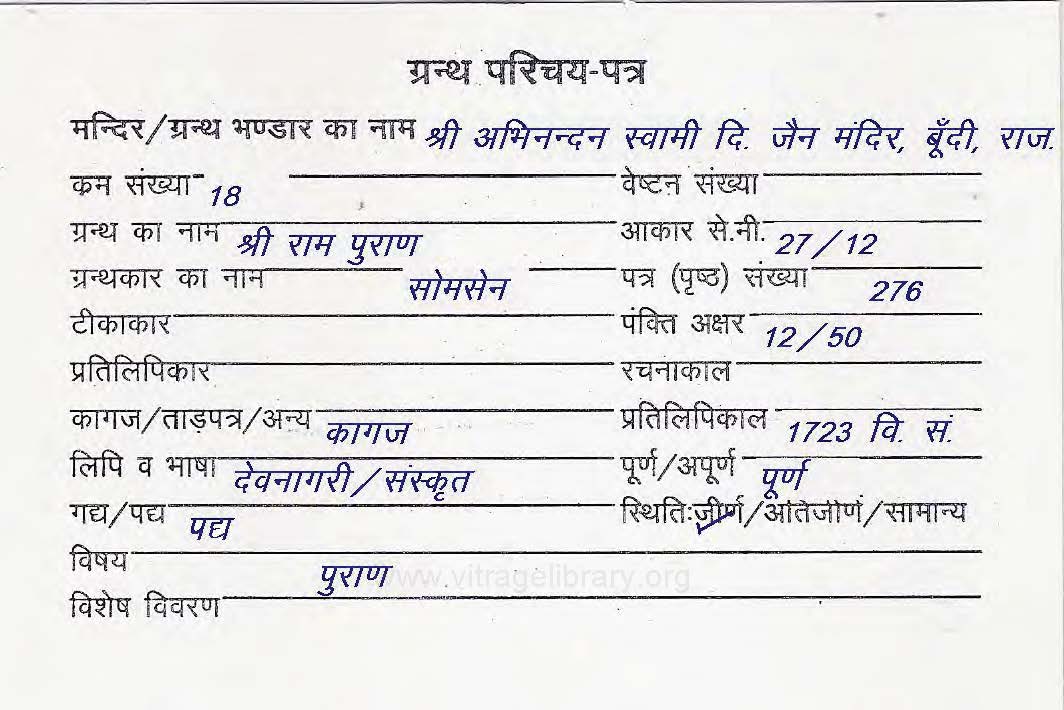 ग्रन्थ परिचय-पत्र
मन्दिर/ग्रन्थ भण्डार का नाम श्री अभिनन्दन स्वामी दि. जैन मंदिर, बूँदी, राज.
कम संख्या 18 वेष्टन संख्या
ग्रन्थ का नाम श्री राम पुराण आकार से.मी. 27/12
ग्रन्थकार का नाम सोमसेन पत्र (पृष्ठ) संख्या 276
टीकाकार पंक्ति अक्षर 12/50
प्रतिलिपिकार रचनाकाल
कागज/ताड़पत्र/अन्य कागज प्रतिलिपिकाल 1723 वि. सं.
लिपि व भाषा देवनागरी/संस्कृत पूर्ण/अपूर्ण पूर्ण
गद्य/पद्य पद्य स्थितिःजीर्ण/अतिजीर्ण/सामान्य
विषय पुराण
www.vitragelibrary.org
विशेष विवरण